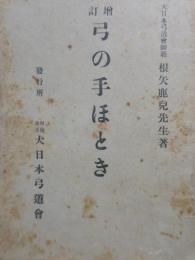 大日本弓道會師範 根矢鹿兒先生著
増訂
弓の手ほとき
發行所
大日本弓道會